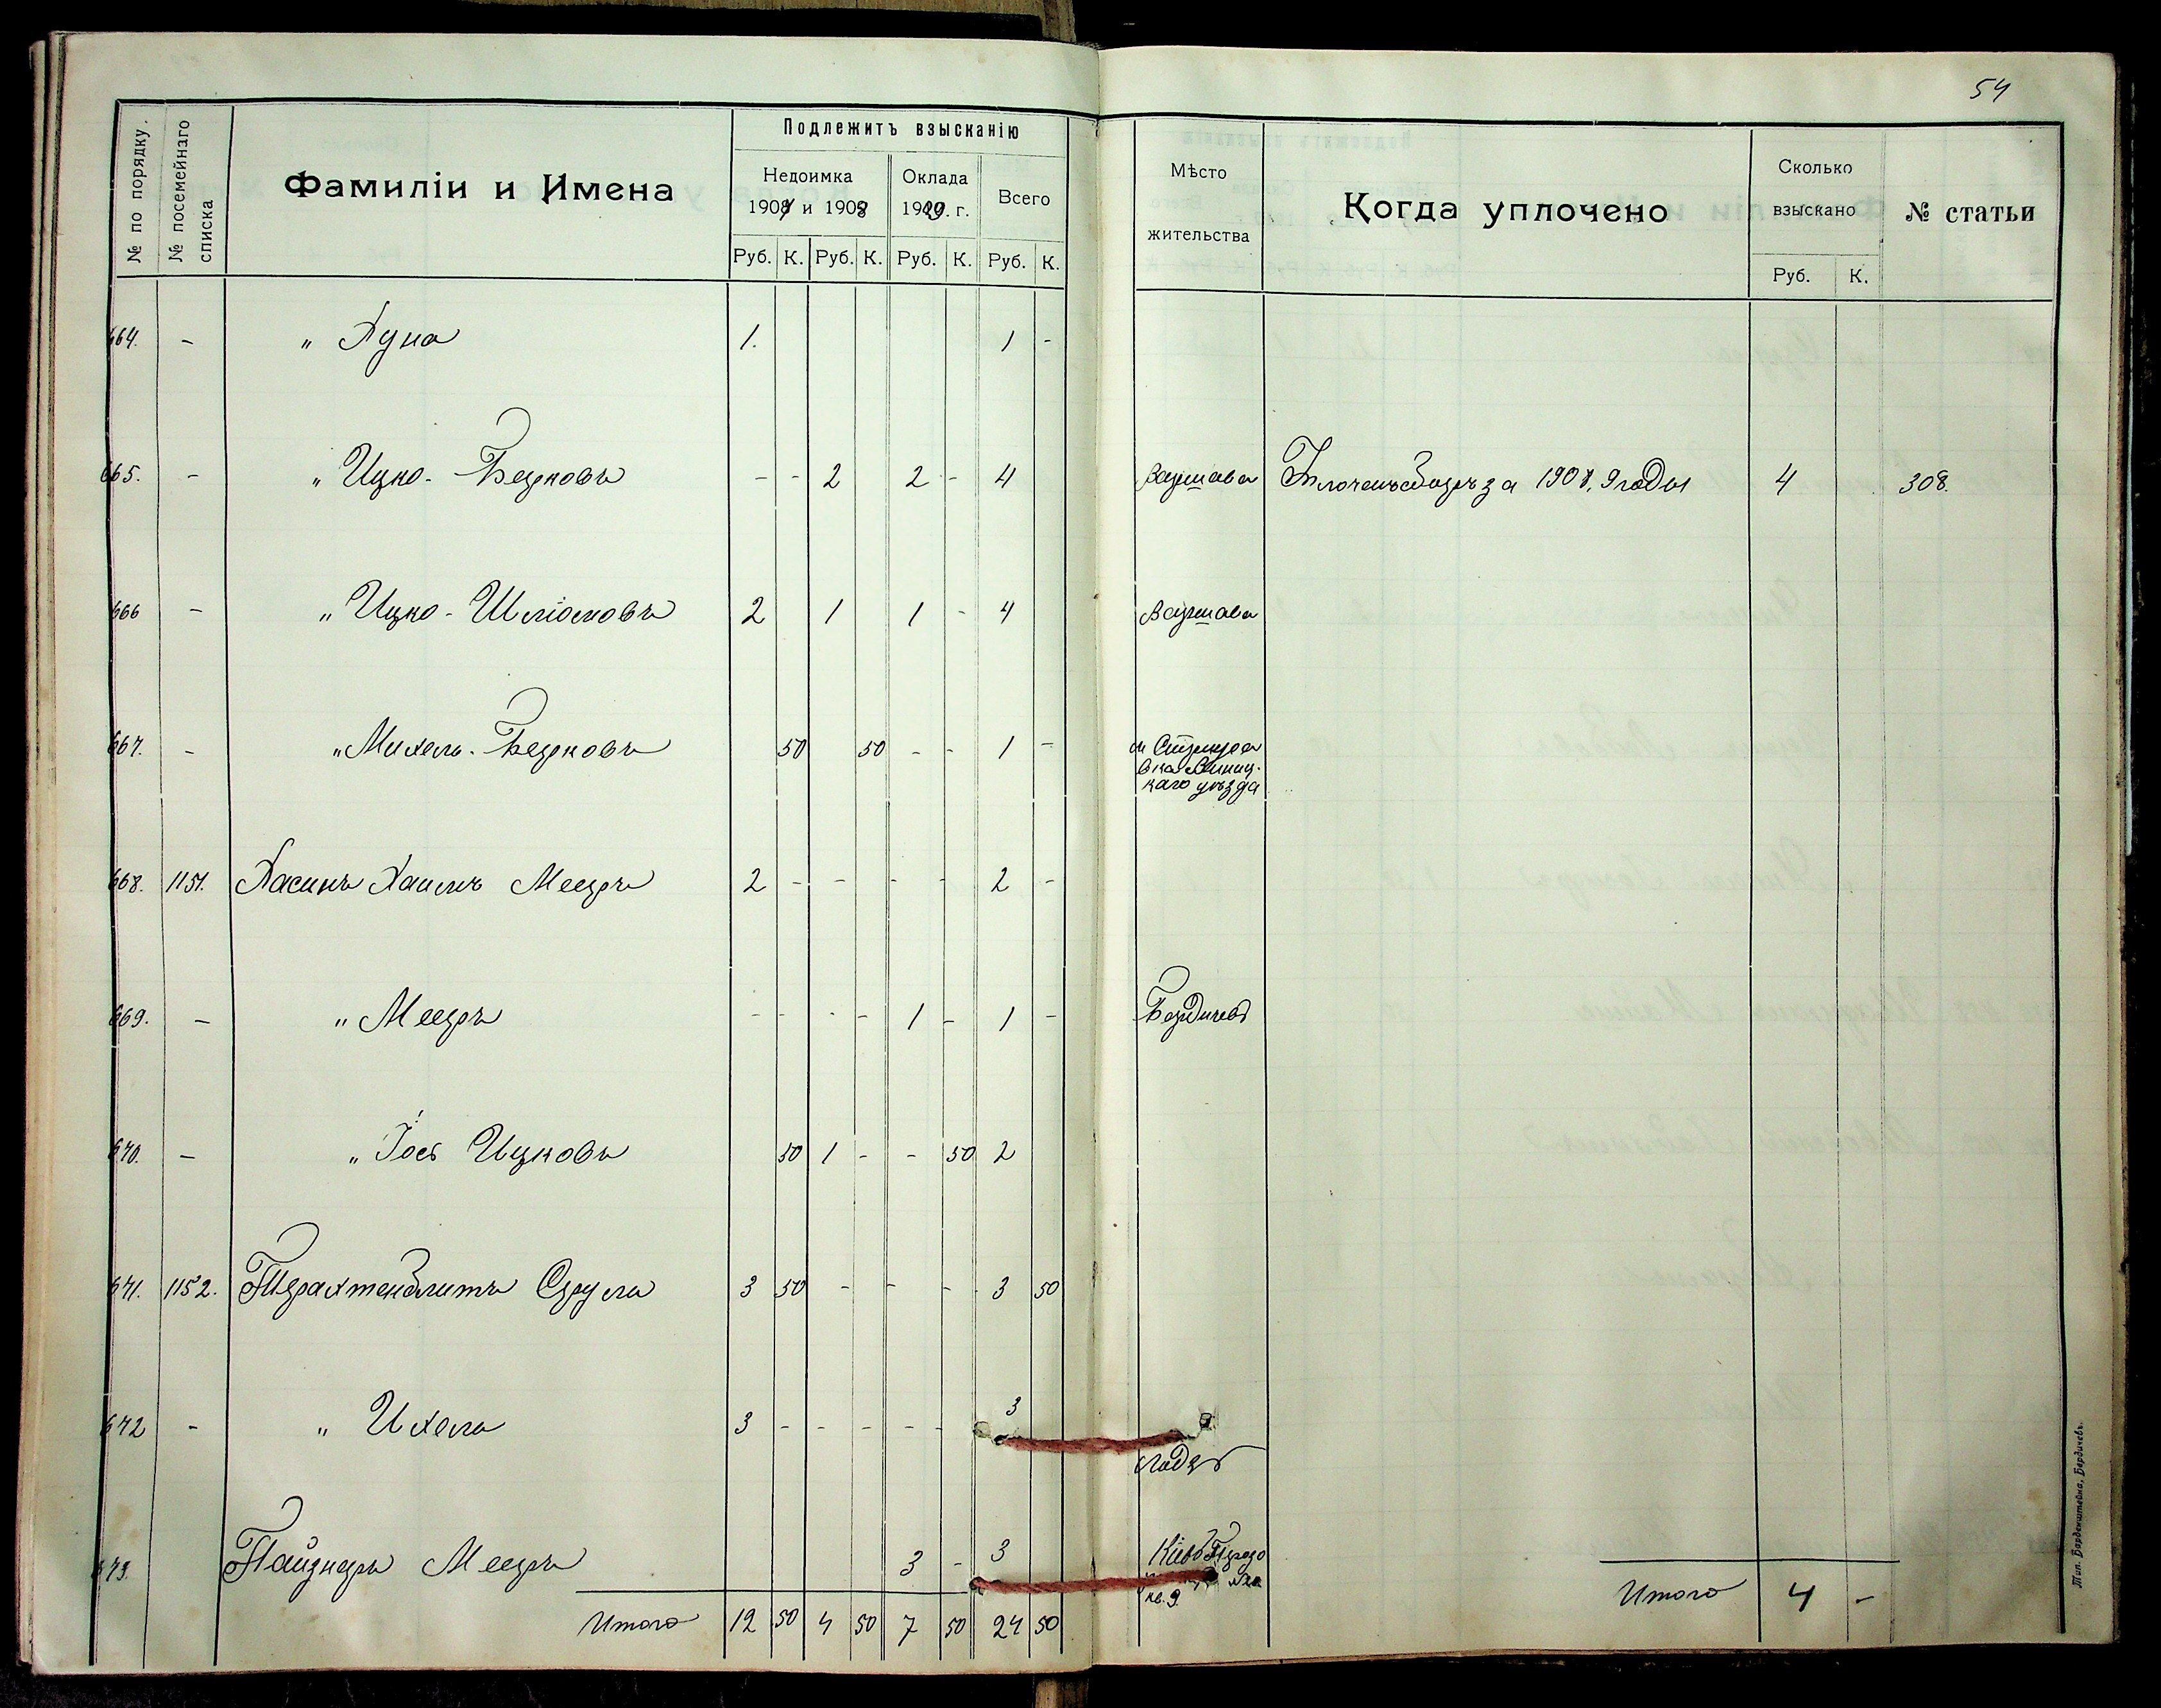 54
№ по порядку.
№ посемейнаго списка
Фамиліи и Имена
Подлежитъ взысканію
Недоимка 1907 и 1908
Оклада 1909. г.
Всего
Руб. К. Руб. К. Руб. К. Руб. К.
Мѣсто жительства
Когда уплочено
Сколько взыскано
Руб. К.
№ статьи
664. - " Хуна 1. 1 -
665. - " Ицко-Берковъ - - 2 2 - 4 Варшава за 1908, 9 годы 4 308.
666 - " Ицко-Шліомовъ 2 1 1 - 4 Варшава
667. - " Михель-Берковъ 50 50 - - 1 -
каго уѣзда
668. 1151. Хасинъ Хаимъ Мееръ 2 - - - - 2 -
669. - " Мееръ - - - - 1 - 1 - Бердичев
670. - " Іось Ицковъ 50 1 - - 50 2
671. 1152. Трахтенблитъ Сруль 3 50 - - - - 3 50
672 - " Ихель 3 - - - - - 3
Лодзь
673. Мееръ 3 - 3 Кіевъ
кв. 9.
Итого 12 50 4 50 7 50 24 50
Итого 4 -
Тип. Барденштейна, Бердичевъ.